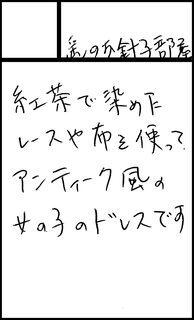 私のお針子部屋
紅茶で染めた
レースや布を使って
アンティーク風の
女の子のドレスです